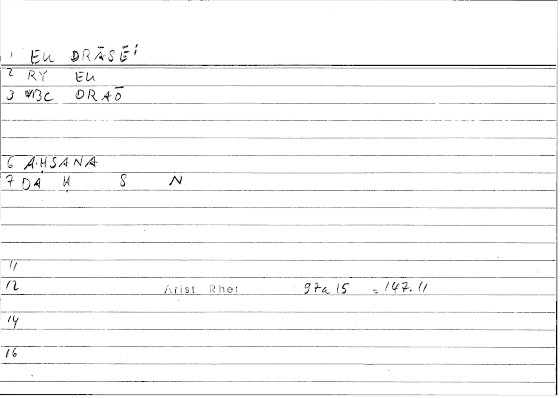 1 EU DRĀSĒI
2 RY EU
3 ABC DRAŌ
6 AḤSANA
7 DA Ḥ S N
11
12 Arist Rhet 97a15 = 147.11
14
16